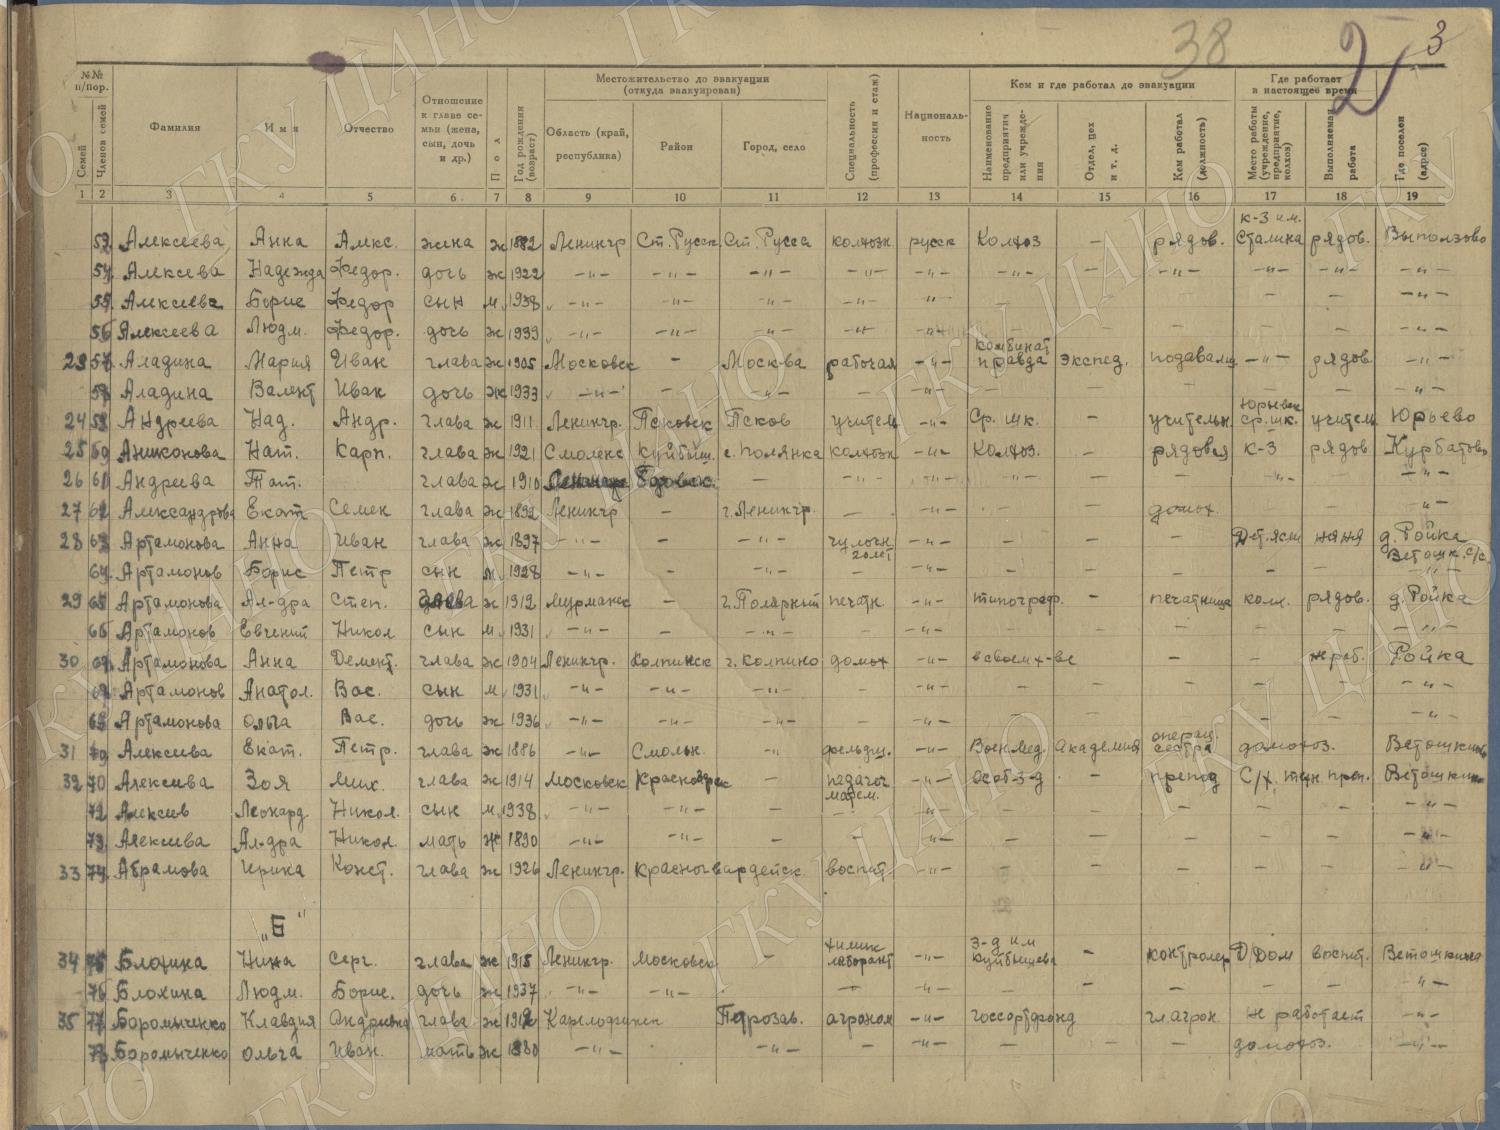 38 3
№№ п/пор. Местожительство до эвакуации (откуда эвакуирован) Кем и где работал до эвакуации Где работает в настоящее время
Семей Членов семей Фамилия Имя Отчество Отношение к главе семьи (жена, сын, дочь и др.) Пол Год рождения (возраст) Область (край, республика) Район Город, село Специальность (профессия и стаж) Национальность Наименование предприятия или учреждения Отдел, цех и т. д. Кем работал (должность) Место работы (учреждение, предприятие, колхоз) Выполняемая работа Где поселен (адрес)
1 2 3 4 5 6 7 8 9 10 11 12 13 14 15 16 17 18 19
53 Алексеева Анна Алкс. жена ж 1882 Ленингр Ст. Русск. Ст. Русса колхозн. русск Колхоз — рядов. к-з им. Сталина рядов. Выползово
54 Алексева Надежда Федор. дочь ж 1922 —〃— —〃— —〃— —〃— —〃— —〃— — —〃— —〃— —〃— —〃—
55 Алексеева Борис Федор сын м 1938 —〃— —〃— —〃— —〃— —〃— — — — — — —〃—
56 Алексеева Людм. Федор. дочь ж 1939 —〃— —〃— —〃— —〃— —〃— — — — — — —〃—
23 57 Аладина Мария Иван глава ж 1905 Московск — Москва рабочая —〃— комбинат правда экспед. подавальщ —〃— рядов. —〃—
58 Аладина Валент Иван дочь ж 1933 —〃— — —〃— — —〃— — — — — — —〃—
24 58 Андреева Над. Андр. глава ж 1911 Ленингр. Псковск Псков учител —〃— Ср. шк. — учительн. Юрьевск ср. шк. учител Юрьево
25 59 Аниконова Нат. Карп. глава ж 1921 Смоленс Куйбыш. с. Полянка колхозн —〃— Колхоз. — рядовая к-з рядов Курбатово
26 61 Андреева Тат. глава ж 1910 —〃— —〃—
27 62 Александрова Екат Семен глава ж 1892 Ленингр — г. Ленингр. — —〃— — — домох. — — —〃—
28 63 Артамонова Анна Иван глава ж 1897 —〃— — —〃— чулочн. —〃— — — — Дет. ясли няня д. Ройка Ветошк. с/с.
64. Артамонов Борис Петр сын м 1928 —〃— — —〃— — —〃— — — — — — —〃—
29 65 Артамонова Ал-дра Степ. глава ж 1912 Мурманск — г. Полярный печатн. —〃— типограф. — печатница колх. рядов. д. Ройка
66 Артамонов Евгений Никол сын м 1931 —〃— — —〃— — —〃— — — — — — —〃—
30 67. Артамонова Анна Демент. глава ж 1904 Ленингр. Колпинск г. Колпино домох —〃— в своем х-ве — — не раб. Ройка
Артамонов Анатол. Вас. сын м 1931 —〃— —〃— —〃— — —〃— — — — — — —〃—
Артамонова Ольга Вас. дочь ж 1936 —〃— —〃— —〃— — —〃— — — — — — —〃—
31 69 Алексеева Екат. Петр. глава ж 1886 —〃— Смольн. —〃— фельдш. —〃— Воен. Мед. Академия операц. сестра домохоз. Ветошкино
32 70 Алексеева Зоя Мих. глава ж 1914 Московск Красноярск — педагог матем. —〃— особ-з-д — препод С/х. техн преп. Ветошкин
72 Алексеев Леонард Никол. сын м 1938 —〃— —〃— — — —〃— — — — — — —〃—
73. Алексеева Ал-дра Никол мать ж 1890 —〃— —〃— — — —〃— — — — — — —〃—
33 74 Абрамова Ирина Конст. глава ж 1926 Ленингр. Красногвардейск воспит —〃— — — — — — —〃—
„Б"
34 75 Блохина Нина Серг. глава ж 1915 Ленингр. Московск — химик лаборант —〃— з-д им Куйбышева — контролер Д/Дом воспит. Ветошкино
76 Блохина Людм. Борис. дочь ж 1937 —〃— —〃— — —〃— — — — — — —〃—
35 77 Боромыченко Клавдия Андреевна глава ж 1912 Карелофинск Петрозав. агроном —〃— госсортфонд гл. агрон. не работает —〃—
78 Боромыченко Ольга Иван. мать ж 1880 —〃— —〃— — —〃— — — — домохоз. —〃—
ГКУ ЦАНО